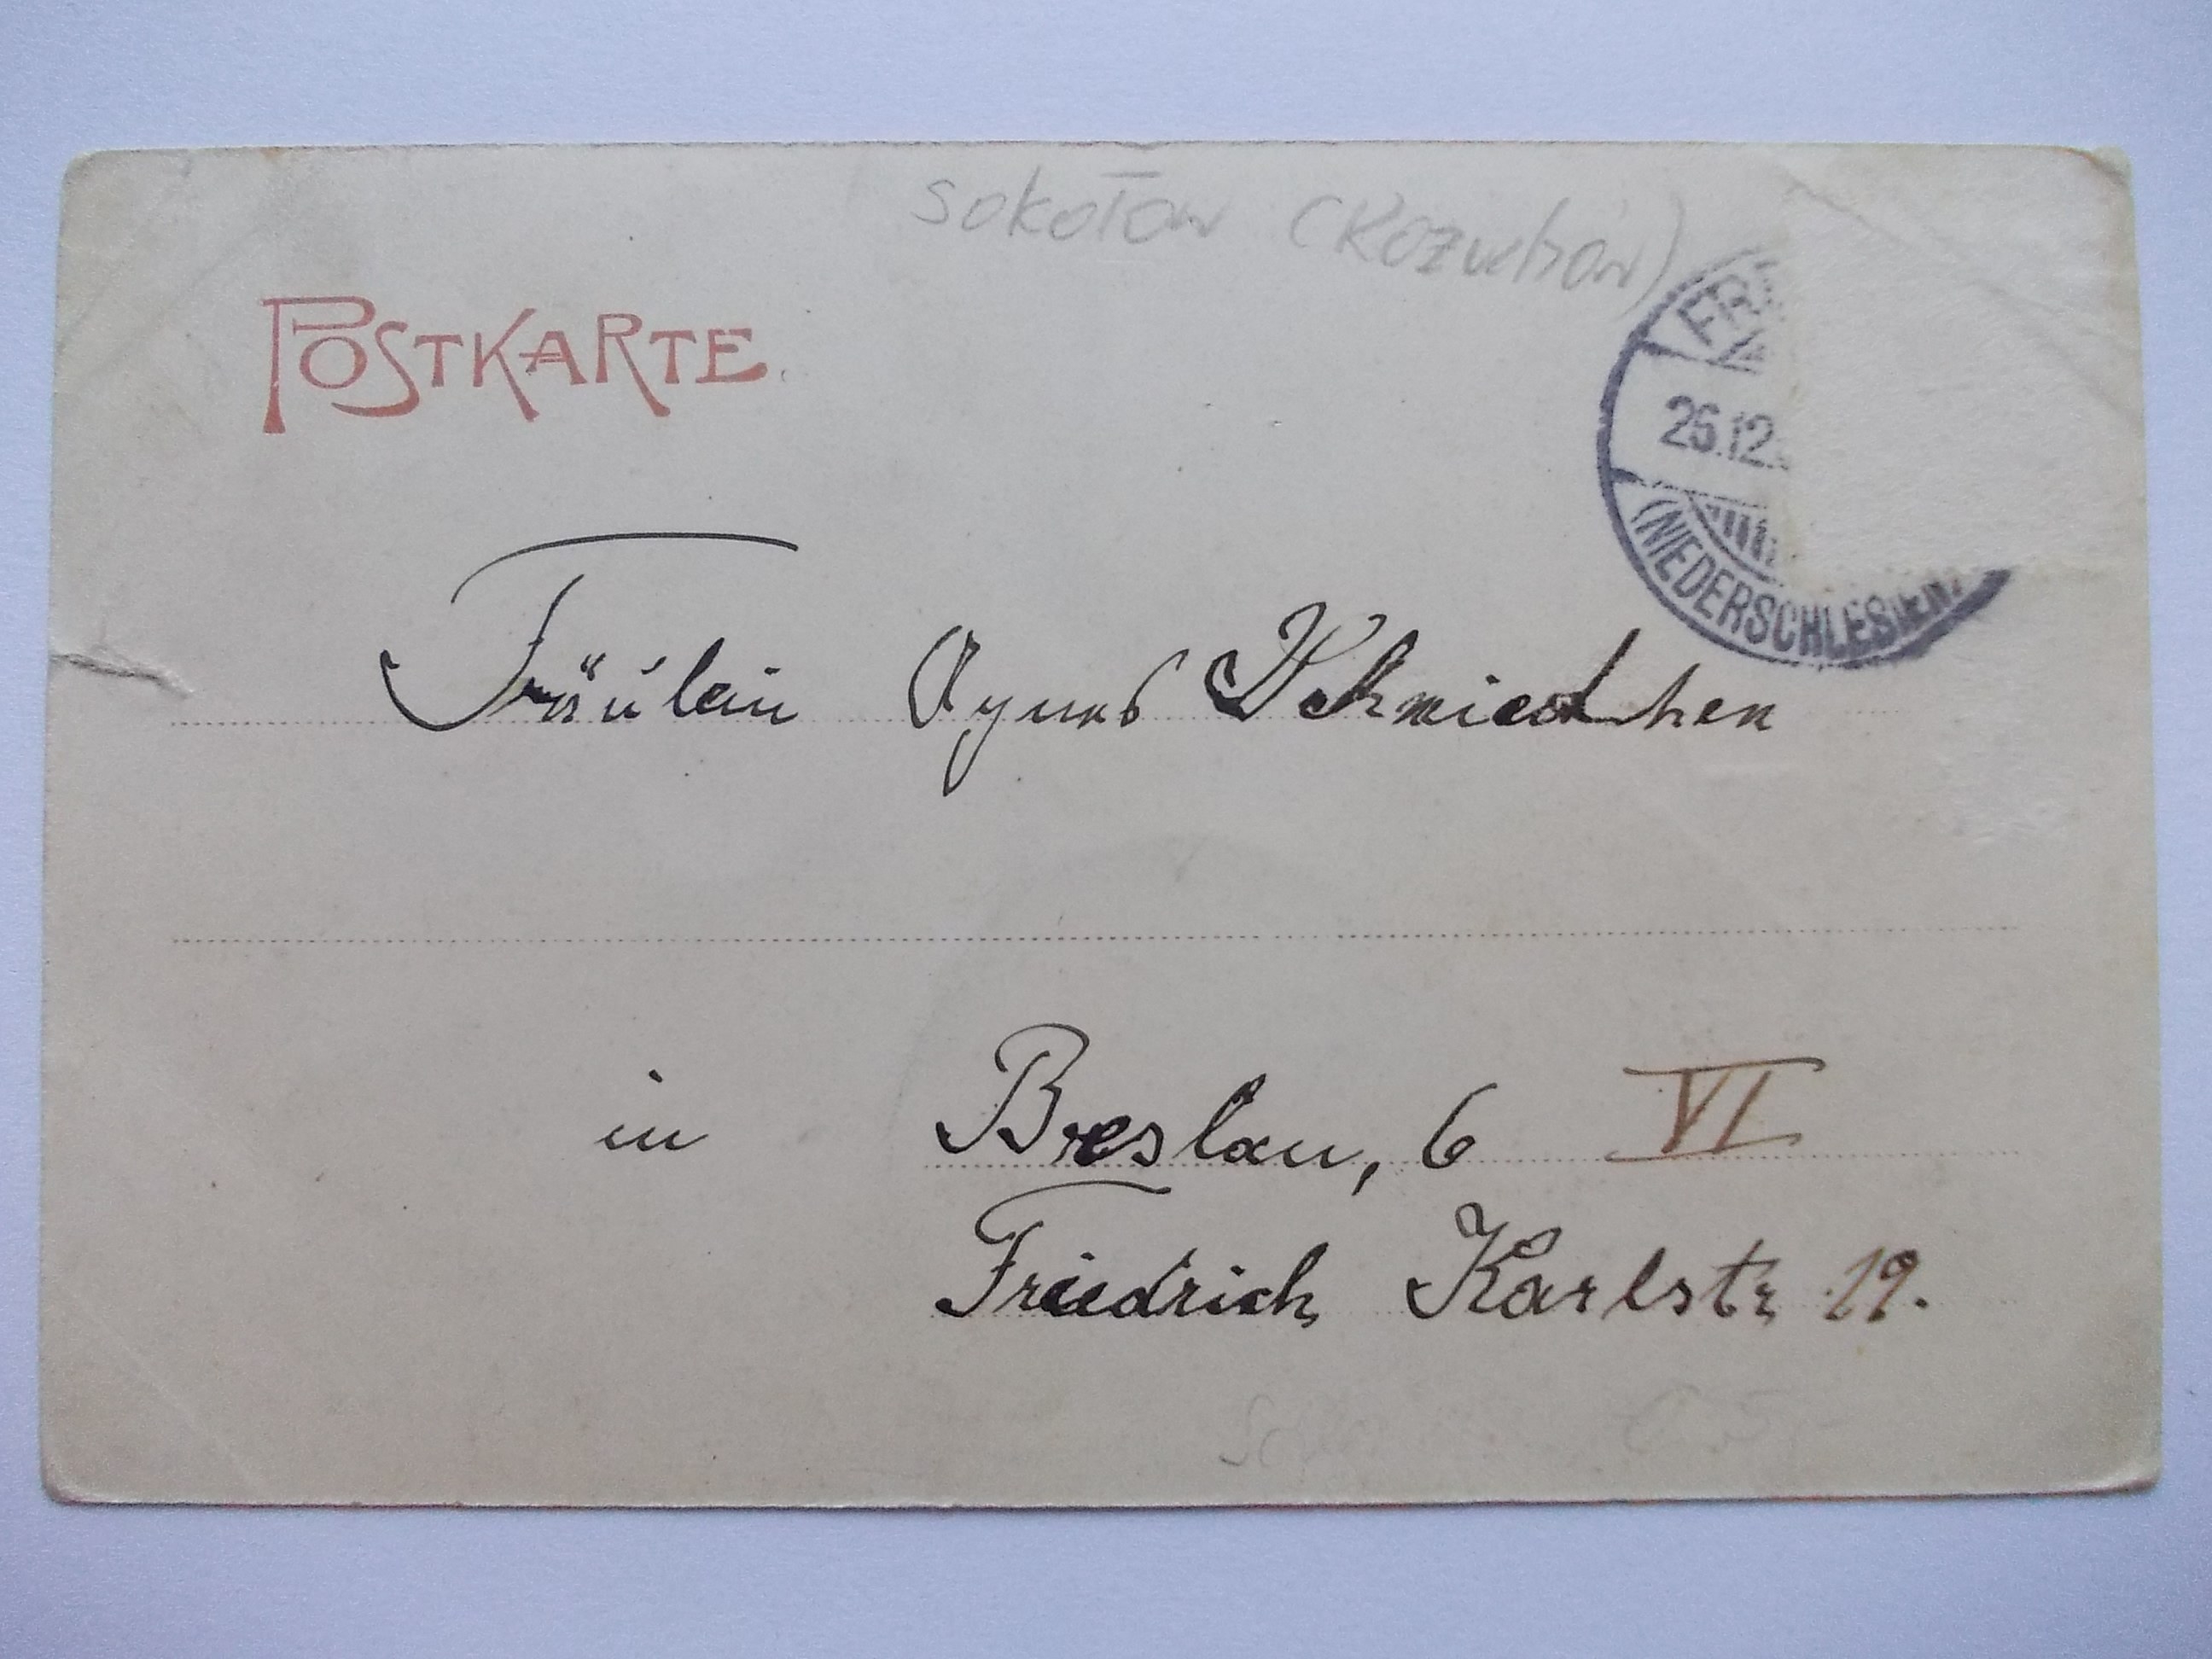 Sokołów (Kożuchów)
POSTKARTE.
FR
25.12.
(NIEDERSCHLESIEN)
Fräulein Agnes Schmiedchen
in Breslau, 6 VI
Friedrich Karlstr 19.